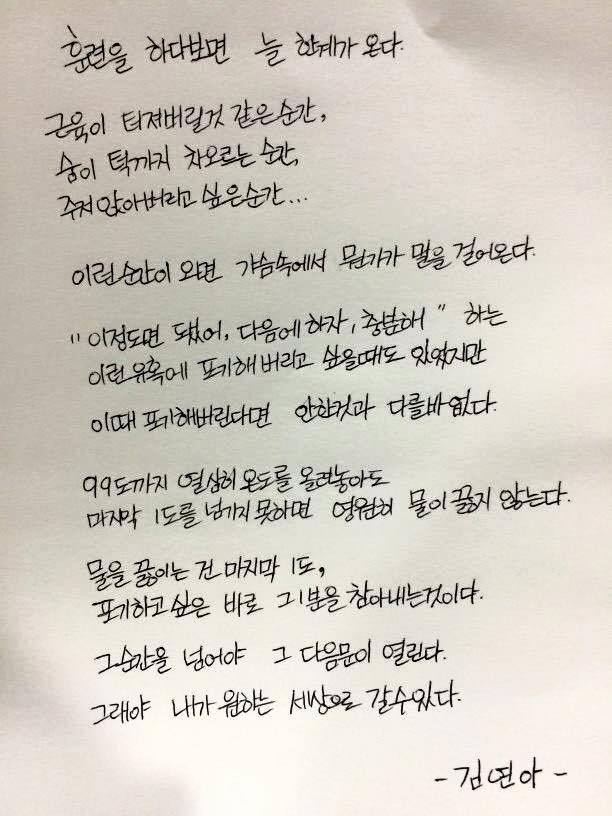 훈련을 하다보면 늘 한계가 온다.
근육이 터져버릴것 같은 순간,
숨이 턱까지 차오르는 순간,
주저 앉아버리고 싶은 순간...
이런 순간이 오면 가슴속에서 뭔가가 말을 걸어온다.
"이정도면 됐어, 다음에 하자, 충분해" 하는
이런 유혹에 포기해 버리고 싶을때도 있었지만
이때 포기해버린다면 안한것과 다를바 없다.
99도까지 열심히 온도를 올려놓아도
마지막 1도를 넘기지 못하면 영원히 물이 끓지 않는다.
물을 끓이는 건 마지막 1도,
포기하고 싶은 바로 그 1분을 참아내는것이다.
그순간을 넘어야 그 다음문이 열린다.
그래야 내가 원하는 세상으로 갈수있다.
- 김연아 -